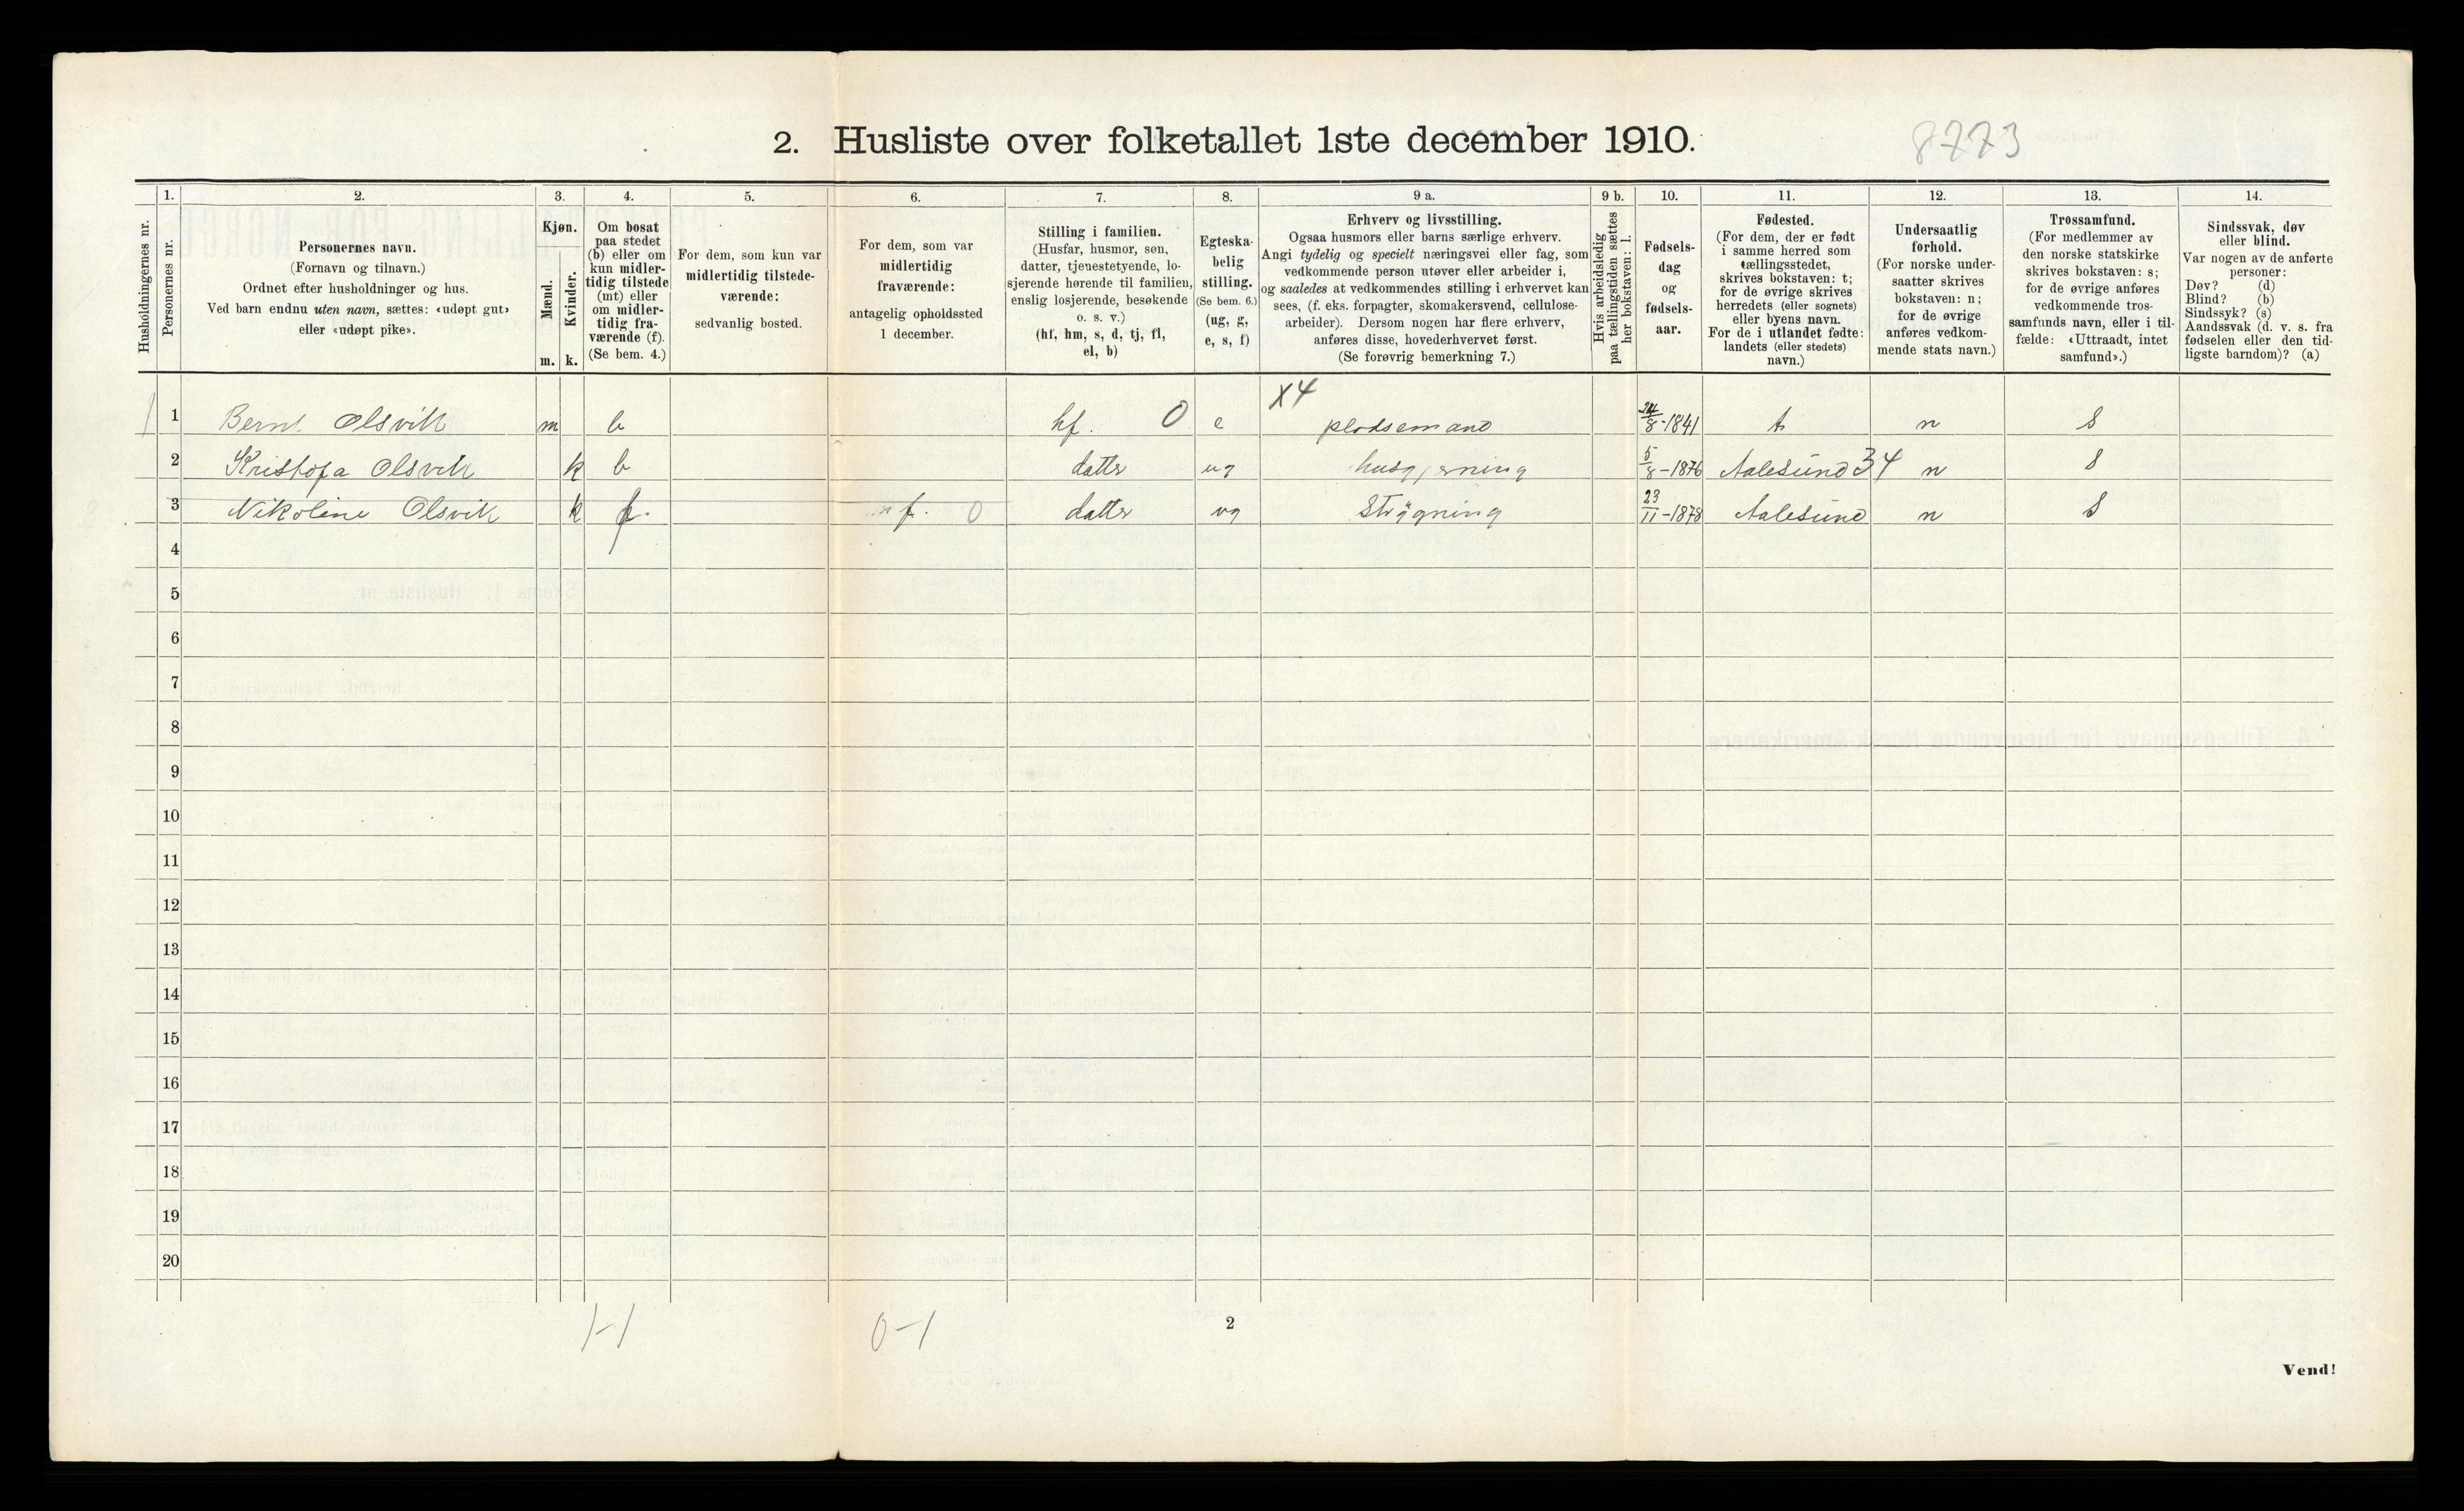 2. Husliste over folketallet 1ste december 1910.
8773
1. 2. 3. 4. 5. 6. 7. 8. 9 a. 9 b. 10. 11. 12. 13. 14.
Husholdningernes nr.
Personernes nr.
Personernes navn.
(Fornavn og tilnavn.)
Ordnet efter husholdninger og hus.
Ved barn endnu uten navn, sættes: «udøpt gut»
eller «udøpt pike».
Kjøn.
Mænd.
Kvinder.
m. k.
Om bosat
paa stedet
(b) eller om
kun midler-
tidig tilstede
(mt) eller
om midler-
tidig fra-
værende (f).
(Se bem. 4.)
For dem, som kun var
midlertidig tilstede-
værende:
sedvanlig bosted.
For dem, som var
midlertidig
fraværende:
antagelig opholdssted
1 december.
Stilling i familien.
(Husfar, husmor, søn,
datter, tjenestetyende, lo-
sjerende hørende til familien,
enslig losjerende, besøkende
o. s. v.)
(hf, hm, s, d, tj, fl,
el, b)
Egteska-
belig
stilling.
(Se bem. 6.)
(ug, g,
e, s, f)
Erhverv og livsstilling.
Ogsaa husmors eller barns særlige erhverv.
Angi tydelig og specielt næringsvei eller fag, som
vedkommende person utøver eller arbeider i,
og saaledes at vedkommendes stilling i erhvervet kan
sees, (f. eks. forpagter, skomakersvend, cellulose-
arbeider). Dersom nogen har flere erhverv,
anføres disse, hovederhvervet først.
(Se forøvrig bemerkning 7.)
Hvis arbeidsledig
paa tællingstiden sættes
her bokstaven: l.
Fødsels-
dag
og
fødsels-
aar.
Fødested.
(For dem, der er født
i samme herred som
tællingsstedet,
skrives bokstaven: t;
for de øvrige skrives
herredets (eller sognets)
eller byens navn.
For de i utlandet fødte:
landets (eller stedets)
navn.)
Undersaatlig
forhold.
(For norske under-
saatter skrives
bokstaven: n;
for de øvrige
anføres vedkom-
mende stats navn.)
Trossamfund.
(For medlemmer av
den norske statskirke
skrives bokstaven: s;
for de øvrige anføres
vedkommende tros-
samfunds navn, eller i til-
fælde: «Uttraadt, intet
samfund».)
Sindssvak, døv
eller blind.
Var nogen av de anførte
personer:
Døv? (d)
Blind? (b)
Sindssyk? (s)
Aandssvak (d. v. s. fra
fødselen eller den tid-
ligste barndom)? (a)
X4
1 1 Bernt Olsvik m b hf. 0 e pladsemand 24/8-1841 t n S
2 Kristofa Olsvik k b datter ug husgjerning 5/8-1876 Aalesund 34 n S
3 Nikoline Olsvik k f. nf. 0 datter ug Strygning 23/11-1878 Aalesund n S
4
5
6
7
8
9
10
11
12
13
14
15
16
17
18
19
20
1-1
0-1
2
Vend!